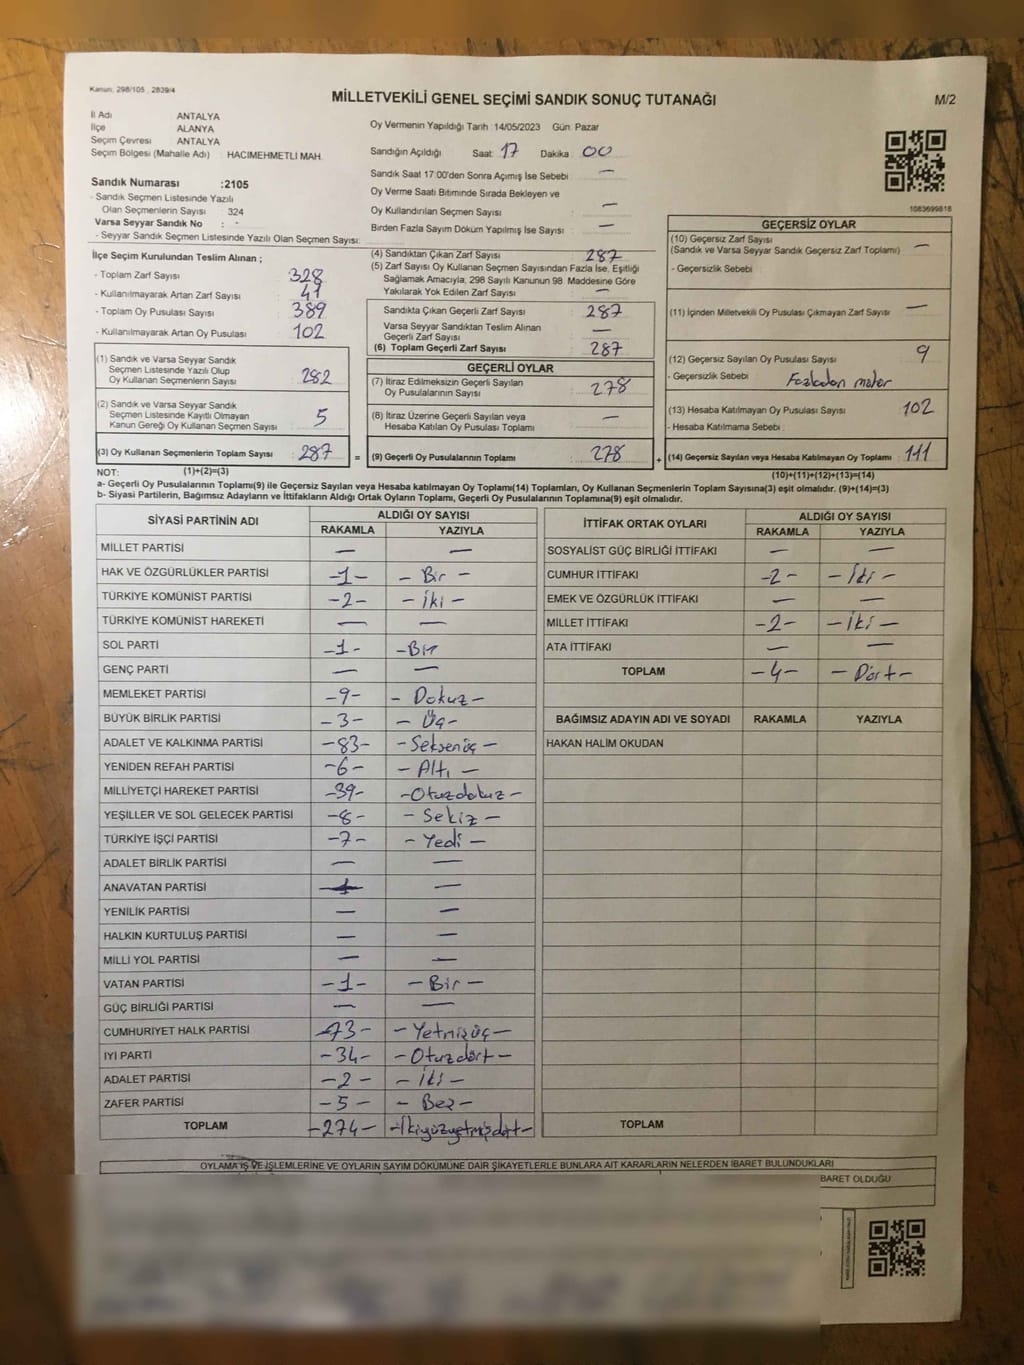 Kanun: 298/105 , 2839/4
MİLLETVEKİLİ GENEL SEÇİMİ SANDIK SONUÇ TUTANAĞI
M/2
İl Adı ANTALYA
İlçe ALANYA
Seçim Çevresi ANTALYA
Seçim Bölgesi (Mahalle Adı) HACIMEHMETLİ MAH.
Sandık Numarası :2105
- Sandık Seçmen Listesinde Yazılı
Olan Seçmenlerin Sayısı 324
Varsa Seyyar Sandık No : -
- Seyyar Sandık Seçmen Listesinde Yazılı Olan Seçmen Sayısı:
Oy Vermenin Yapıldığı Tarih :14/05/2023 Gün: Pazar
Sandığın Açıldığı Saat: 17 Dakika : 00
Sandık Saat 17:00'den Sonra Açımış İse Sebebi —
Oy Verme Saati Bitiminde Sırada Bekleyen ve
Oy Kullandırılan Seçmen Sayısı : —
Birden Fazla Sayım Döküm Yapılmış İse Sayısı : —
1083699818
İlçe Seçim Kurulundan Teslim Alınan ;
- Toplam Zarf Sayısı 328
- Kullanılmayarak Artan Zarf Sayısı 41
- Toplam Oy Pusulası Sayısı 389
- Kullanılmayarak Artan Oy Pusulası 102
(1) Sandık ve Varsa Seyyar Sandık
Seçmen Listesinde Yazılı Olup
Oy Kullanan Seçmenlerin Sayısı : 282
(2) Sandık ve Varsa Seyyar Sandık
Seçmen Listesinde Kayıtlı Olmayan
Kanun Gereği Oy Kullanan Seçmen Sayısı : 5
(3) Oy Kullanan Seçmenlerin Toplam Sayısı : 287 =
(4) Sandıktan Çıkan Zarf Sayısı : 287
(5) Zarf Sayısı Oy Kullanan Seçmen Sayısından Fazla İse, Eşitliği
Sağlamak Amacıyla, 298 Sayılı Kanunun 98 Maddesine Göre
Yakılarak Yok Edilen Zarf Sayısı : —
Sandıkta Çıkan Geçerli Zarf Sayısı : 287
Varsa Seyyar Sandıktan Teslim Alınan
Geçerli Zarf Sayısı : —
(6) Toplam Geçerli Zarf Sayısı : 287
GEÇERLİ OYLAR
(7) İtiraz Edilmeksizin Geçerli Sayılan
Oy Pusulalarının Sayısı : 278
(8) İtiraz Üzerine Geçerli Sayılan veya
Hesaba Katılan Oy Pusulası Toplamı : —
(9) Geçerli Oy Pusulalarının Toplamı : 278 +
GEÇERSİZ OYLAR
(10) Geçersiz Zarf Sayısı
(Sandık ve Varsa Seyyar Sandık Geçersiz Zarf Toplamı) : —
- Geçersizlik Sebebi :
(11) İçinden Milletvekili Oy Pusulası Çıkmayan Zarf Sayısı : —
(12) Geçersiz Sayılan Oy Pusulası Sayısı : 9
- Geçersizlik Sebebi :
(13) Hesaba Katılmayan Oy Pusulası Sayısı : 102
- Hesaba Katılmama Sebebi :
(14) Geçersiz Sayılan veya Hesaba Katılmayan Oy Toplamı : 111
NOT: (1)+(2)=(3) (10)+(11)+(12)+(13)=(14)
a- Geçerli Oy Pusulalarının Toplamı(9) ile Geçersiz Sayılan veya Hesaba katılmayan Oy Toplamı(14) Toplamları, Oy Kullanan Seçmenlerin Toplam Sayısına(3) eşit olmalıdır. (9)+(14)=(3)
b- Siyasi Partilerin, Bağımsız Adayların ve İttifakların Aldığı Ortak Oyların Toplamı, Geçerli Oy Pusulalarının Toplamına(9) eşit olmalıdır.
SİYASİ PARTİNİN ADI ALDIĞI OY SAYISI
RAKAMLA YAZIYLA
MİLLET PARTİSİ — —
HAK VE ÖZGÜRLÜKLER PARTİSİ -1- - Bir -
TÜRKİYE KOMÜNİST PARTİSİ -2- - İki -
TÜRKİYE KOMÜNİST HAREKETİ — —
SOL PARTİ -1- -Bir
GENÇ PARTİ — —
MEMLEKET PARTİSİ -9- - Dokuz-
BÜYÜK BİRLİK PARTİSİ -3- - Üç-
ADALET VE KALKINMA PARTİSİ -83- -Seksenüç-
YENİDEN REFAH PARTİSİ -6- - Altı -
MİLLİYETÇİ HAREKET PARTİSİ -39- -Otuzdokuz-
YEŞİLLER VE SOL GELECEK PARTİSİ -8- - Sekiz -
TÜRKİYE İŞÇİ PARTİSİ -7- - Yedi -
ADALET BİRLİK PARTİSİ — —
ANAVATAN PARTİSİ — —
YENİLİK PARTİSİ — —
HALKIN KURTULUŞ PARTİSİ — —
MİLLİ YOL PARTİSİ — —
VATAN PARTİSİ -1- - Bir -
GÜÇ BİRLİĞİ PARTİSİ — —
CUMHURİYET HALK PARTİSİ -73- - Yetmişüç-
İYİ PARTİ -34- - Otuzdört-
ADALET PARTİSİ -2- - İki -
ZAFER PARTİSİ -5- - Beş -
TOPLAM -274- -İkiyüzyetmişdört-
İTTİFAK ORTAK OYLARI ALDIĞI OY SAYISI
RAKAMLA YAZIYLA
SOSYALİST GÜÇ BİRLİĞİ İTTİFAKI — —
CUMHUR İTTİFAKI -2- - İki -
EMEK VE ÖZGÜRLÜK İTTİFAKI — —
MİLLET İTTİFAKI -2- - İki -
ATA İTTİFAKI — —
TOPLAM -4- - Dört-
BAĞIMSIZ ADAYIN ADI VE SOYADI RAKAMLA YAZIYLA
HAKAN HALİM OKUDAN
TOPLAM
OYLAMA İŞ VE İŞLEMLERİNE VE OYLARIN SAYIM DÖKÜMÜNE DAİR ŞİKAYETLERLE BUNLARA AİT KARARLARIN NELERDEN İBARET BULUNDUKLARI
BARET OLDUĞU